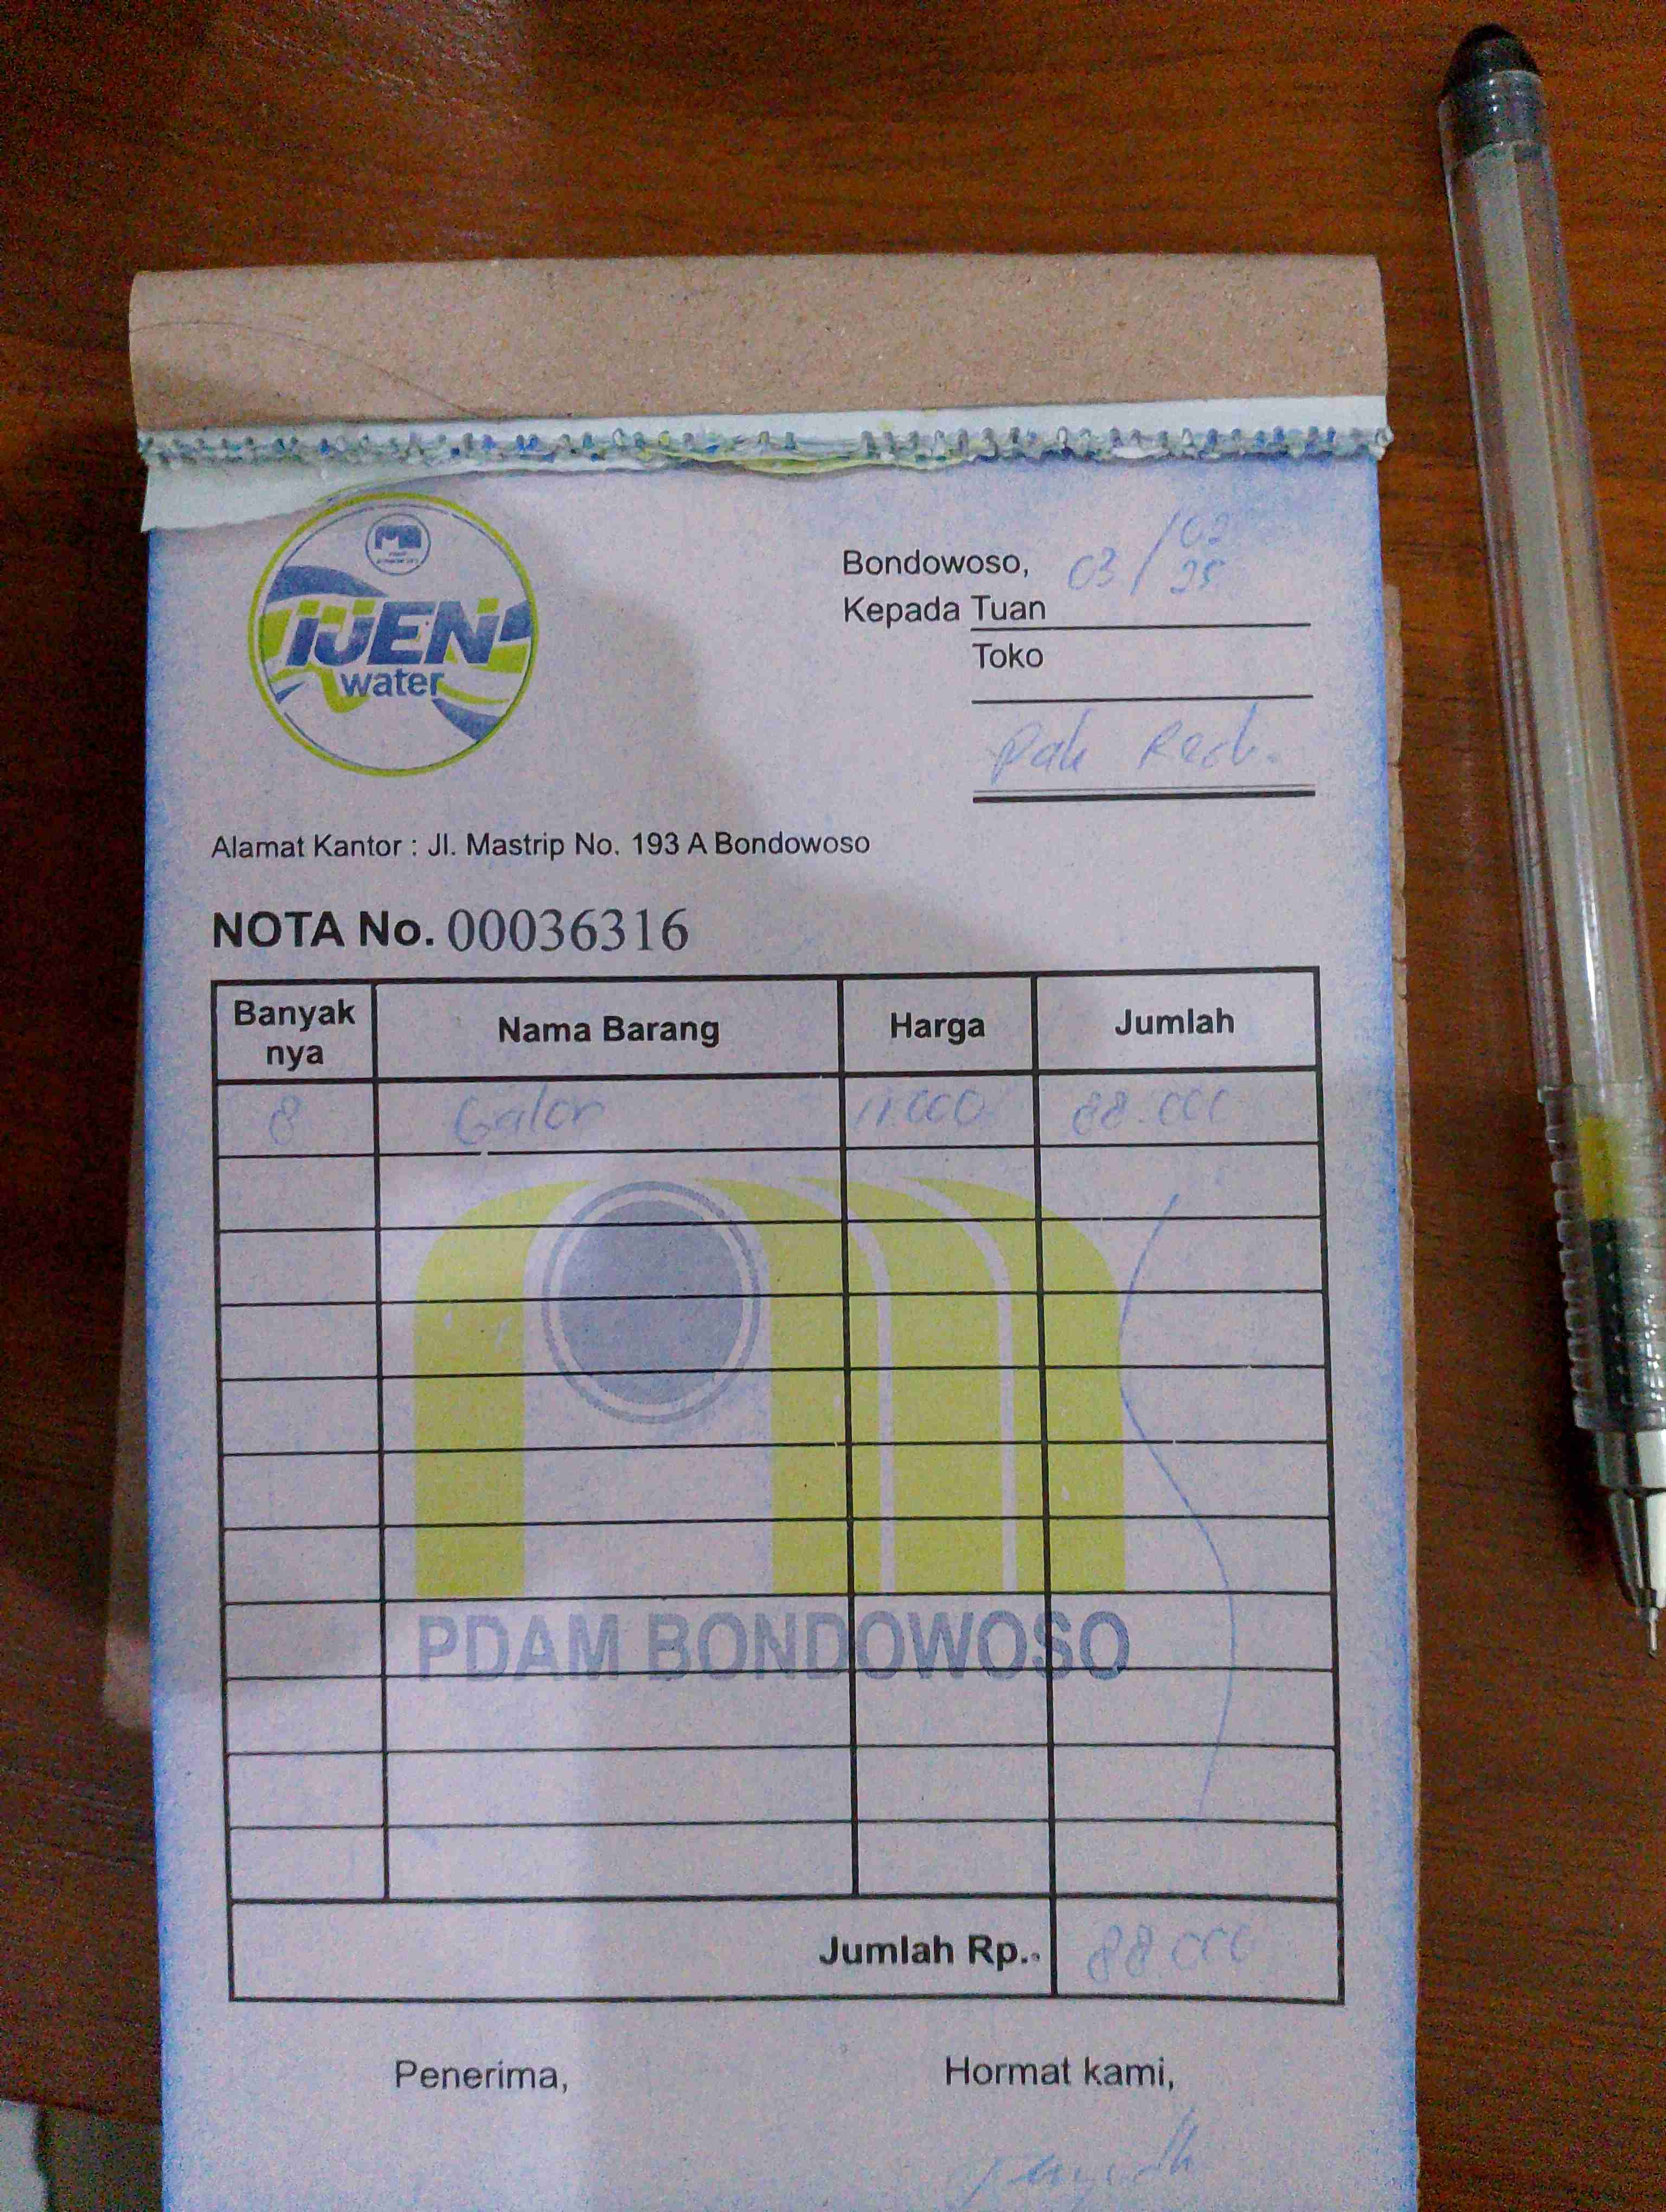 IJEN
water
Bondowoso, 03/02
25
Kepada Tuan
Toko
Pak
Alamat Kantor : Jl. Mastrip No. 193 A Bondowoso
NOTA No. 00036316
Banyak nya Nama Barang Harga Jumlah
8 Galon 11.000 88.000
PDAM BONDOWOSO
Jumlah Rp. 88.000
Penerima, Hormat kami,